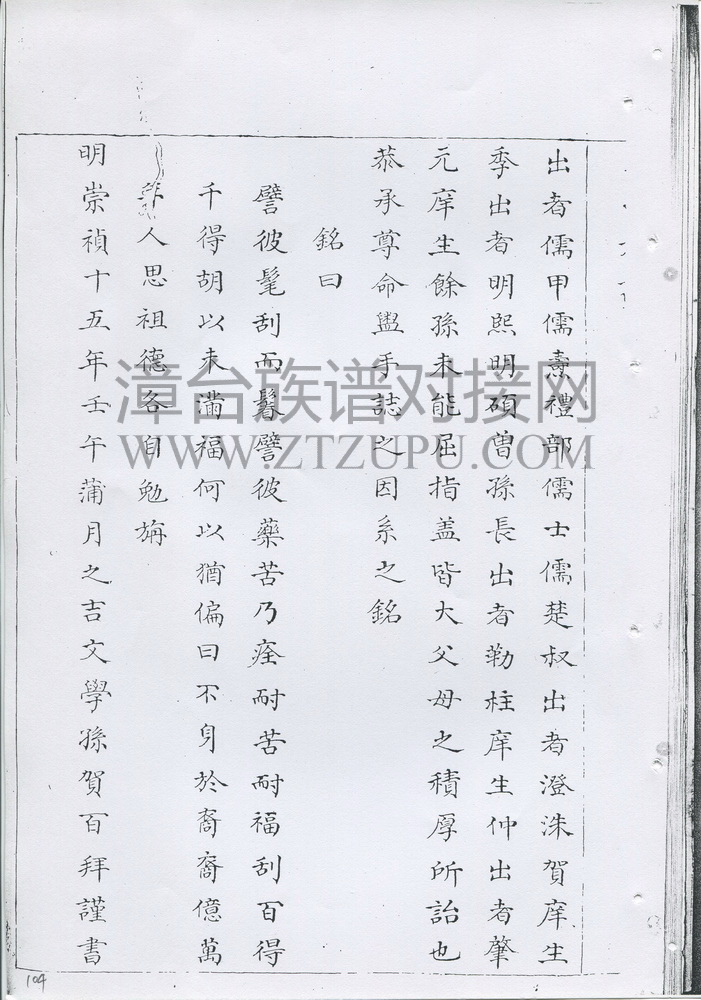 出者儒甲儒熹禮部儒士儒楚叔出者澄洙賀庠生
季出者明熙明碩曾孫長出者勒柱庠生仲出者肇
元庠生餘孫未能屈指盖皆大父母之積厚所詒也
恭承尊命盥手誌之因系之銘
銘曰
譬彼髦刮而鬈譬彼藥苦乃痊耐苦耐福刮百得
千得胡以未滿福何以猶偏曰不身於裔裔億萬
人思祖德各自勉旃
明崇禎十五年壬午蒲月之吉文學孫賀百拜謹書
漳台族谱对接网
WWW.ZTZUPU.COM
104